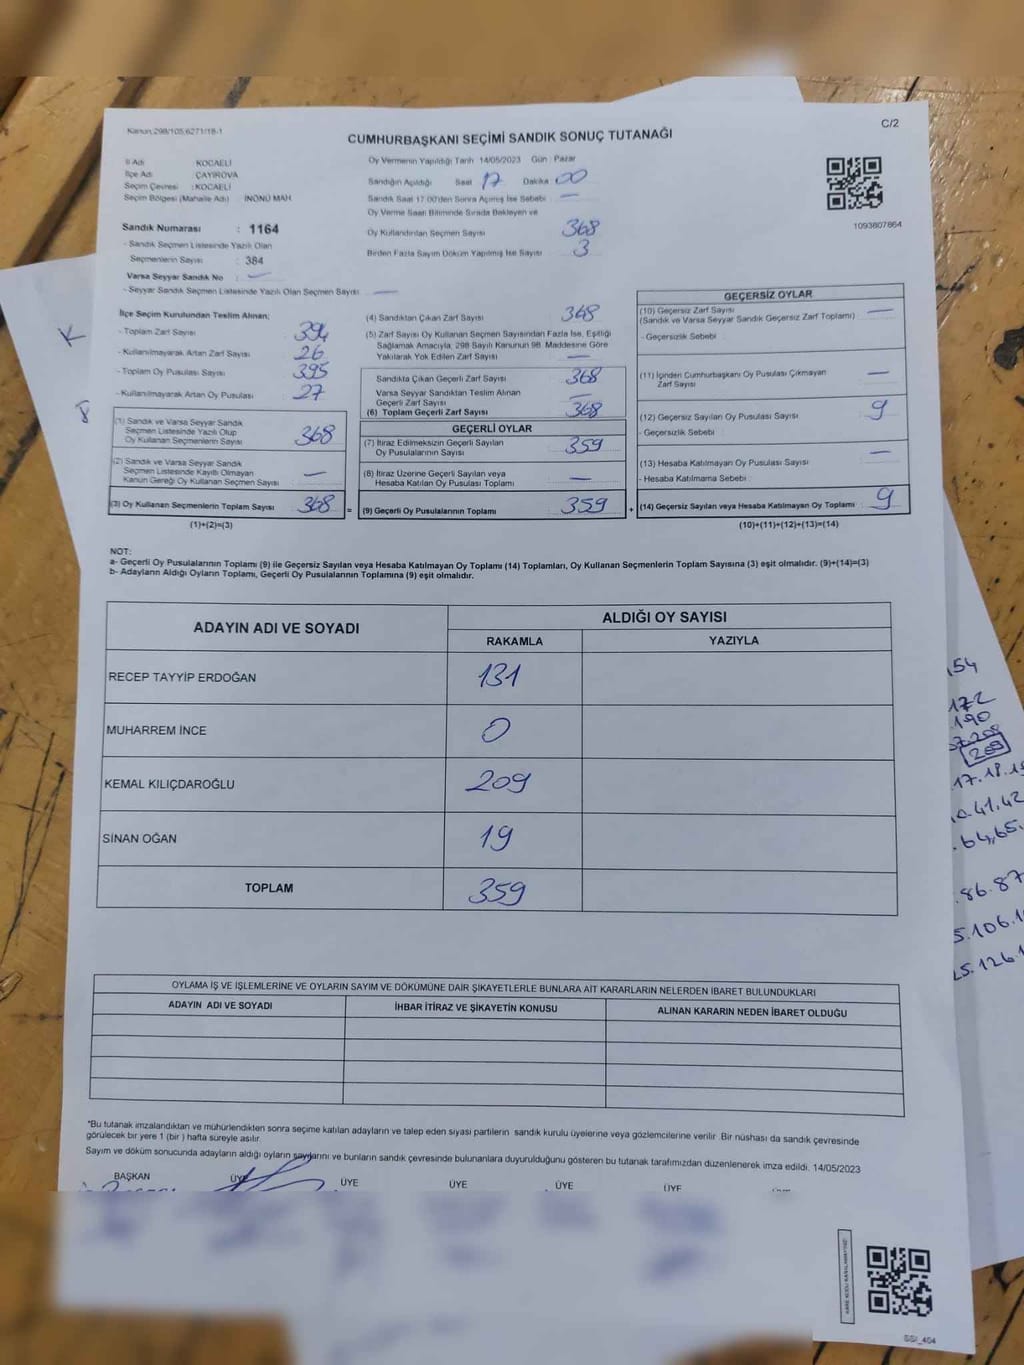 Kanun:298/105,6271/18-1
C/2
CUMHURBAŞKANI SEÇİMİ SANDIK SONUÇ TUTANAĞI
İl Adı : KOCAELİ
İlçe Adı : ÇAYIROVA
Seçim Çevresi : KOCAELİ
Seçim Bölgesi (Mahalle Adı) İNÖNÜ MAH
Oy Vermenin Yapıldığı Tarih 14/05/2023 Gün Pazar
Sandığın Açıldığı Saat 17 Dakika 00
Sandık Saat 17:00'den Sonra Açılmış İse Sebebi : —
Oy Verme Saati Bitiminde Sırada Bekleyen ve
Oy Kullandırılan Seçmen Sayısı 368
Birden Fazla Sayım Döküm Yapılmış İse Sayısı 3
1093807864
Sandık Numarası : 1164
- Sandık Seçmen Listesinde Yazılı Olan
Seçmenlerin Sayısı : 384
Varsa Seyyar Sandık No : —
- Seyyar Sandık Seçmen Listesinde Yazılı Olan Seçmen Sayısı : —
İlçe Seçim Kurulundan Teslim Alınan;
- Toplam Zarf Sayısı 394
- Kullanılmayarak Artan Zarf Sayısı 26
- Toplam Oy Pusulası Sayısı 395
- Kullanılmayarak Artan Oy Pusulası 27
(1) Sandık ve Varsa Seyyar Sandık
Seçmen Listesinde Yazılı Olup
Oy Kullanan Seçmenlerin Sayısı 368
(2) Sandık ve Varsa Seyyar Sandık
Seçmen Listesinde Kayıtlı Olmayan
Kanun Gereği Oy Kullanan Seçmen Sayısı —
(3) Oy Kullanan Seçmenlerin Toplam Sayısı 368
(1)+(2)=(3)
(4) Sandıktan Çıkan Zarf Sayısı 368
(5) Zarf Sayısı Oy Kullanan Seçmen Sayısından Fazla İse, Eşitliği
Sağlamak Amacıyla, 298 Sayılı Kanunun 98. Maddesine Göre
Yakılarak Yok Edilen Zarf Sayısı —
Sandıkta Çıkan Geçerli Zarf Sayısı 368
Varsa Seyyar Sandıktan Teslim Alınan
Geçerli Zarf Sayısı —
(6) Toplam Geçerli Zarf Sayısı 368
GEÇERLİ OYLAR
(7) İtiraz Edilmeksizin Geçerli Sayılan
Oy Pusulalarının Sayısı 359
(8) İtiraz Üzerine Geçerli Sayılan veya
Hesaba Katılan Oy Pusulası Toplamı —
= (9) Geçerli Oy Pusulalarının Toplamı 359
GEÇERSİZ OYLAR
(10) Geçersiz Zarf Sayısı
(Sandık ve Varsa Seyyar Sandık Geçersiz Zarf Toplamı) —
- Geçersizlik Sebebi :
(11) İçinden Cumhurbaşkanı Oy Pusulası Çıkmayan
Zarf Sayısı —
(12) Geçersiz Sayılan Oy Pusulası Sayısı 9
- Geçersizlik Sebebi :
(13) Hesaba Katılmayan Oy Pusulası Sayısı —
- Hesaba Katılmama Sebebi :
+ (14) Geçersiz Sayılan veya Hesaba Katılmayan Oy Toplamı 9
(10)+(11)+(12)+(13)=(14)
NOT:
a- Geçerli Oy Pusulalarının Toplamı (9) ile Geçersiz Sayılan veya Hesaba Katılmayan Oy Toplamı (14) Toplamları, Oy Kullanan Seçmenlerin Toplam Sayısına (3) eşit olmalıdır. (9)+(14)=(3)
b- Adayların Aldığı Oyların Toplamı, Geçerli Oy Pusulalarının Toplamına (9) eşit olmalıdır.
ADAYIN ADI VE SOYADI
ALDIĞI OY SAYISI
RAKAMLA YAZIYLA
RECEP TAYYİP ERDOĞAN 131
MUHARREM İNCE 0
KEMAL KILIÇDAROĞLU 209
SİNAN OĞAN 19
TOPLAM 359
OYLAMA İŞ VE İŞLEMLERİNE VE OYLARIN SAYIM VE DÖKÜMÜNE DAİR ŞİKAYETLERLE BUNLARA AİT KARARLARIN NELERDEN İBARET BULUNDUKLARI
ADAYIN ADI VE SOYADI İHBAR İTİRAZ VE ŞİKAYETİN KONUSU ALINAN KARARIN NEDEN İBARET OLDUĞU
*Bu tutanak imzalandıktan ve mühürlendikten sonra seçime katılan adayların ve talep eden siyasi partilerin sandık kurulu üyelerine veya gözlemcilerine verilir. Bir nüshası da sandık çevresinde
görülecek bir yere 1 (bir) hafta süreyle asılır.
Sayım ve döküm sonucunda adayların aldığı oyların sayılarını ve bunların sandık çevresinde bulunanlara duyurulduğunu gösteren bu tutanak tarafımızdan düzenlenerek imza edildi. 14/05/2023
BAŞKAN ÜYE ÜYE ÜYE ÜYE ÜYE
SSİ_404
K
154
172
190
209
17.18.
41.42
64,65.
86.87
106.
126.